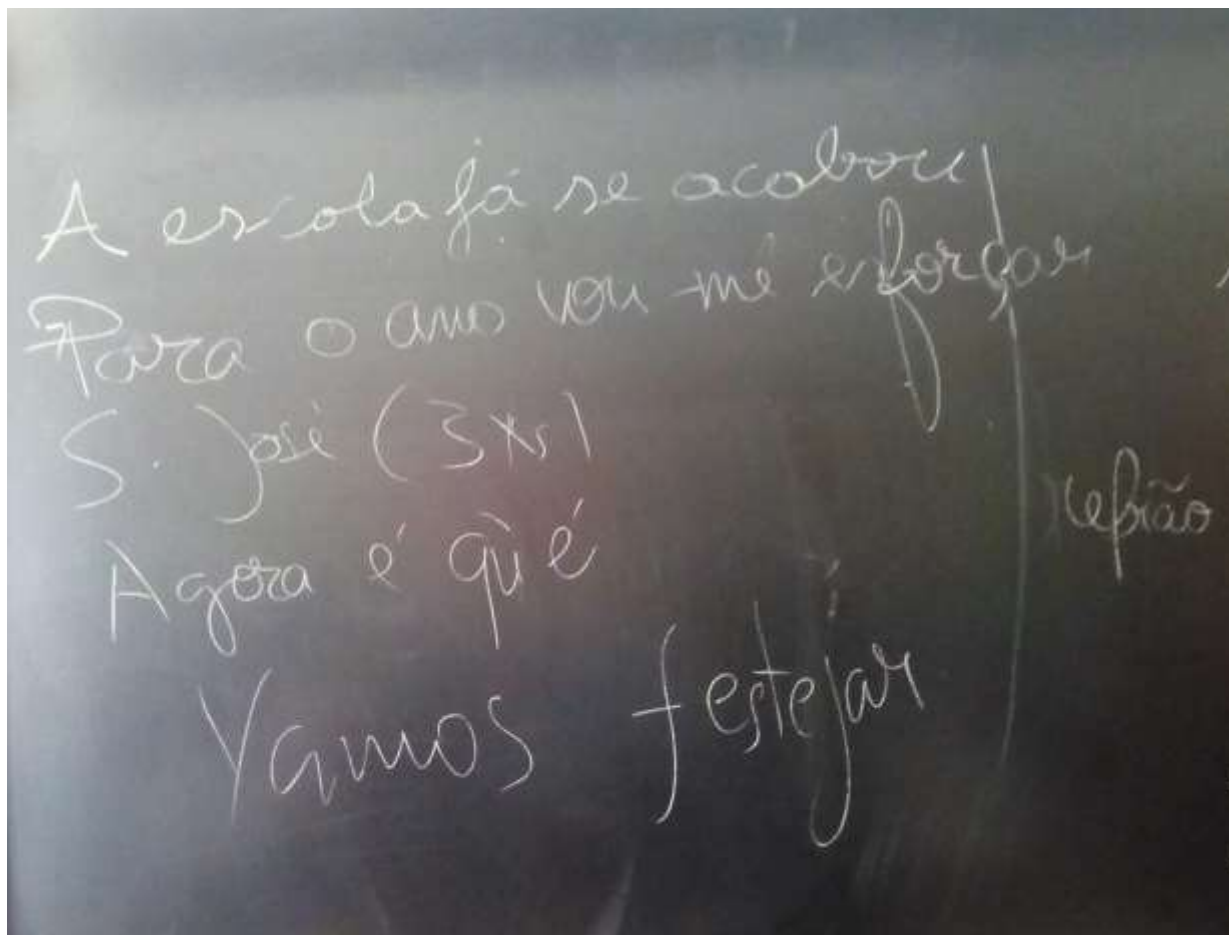 A escola já se acabou
Para o ano vou-me esforçar
S. José (3xs)
Agora é que é
Vamos festejar
refrão